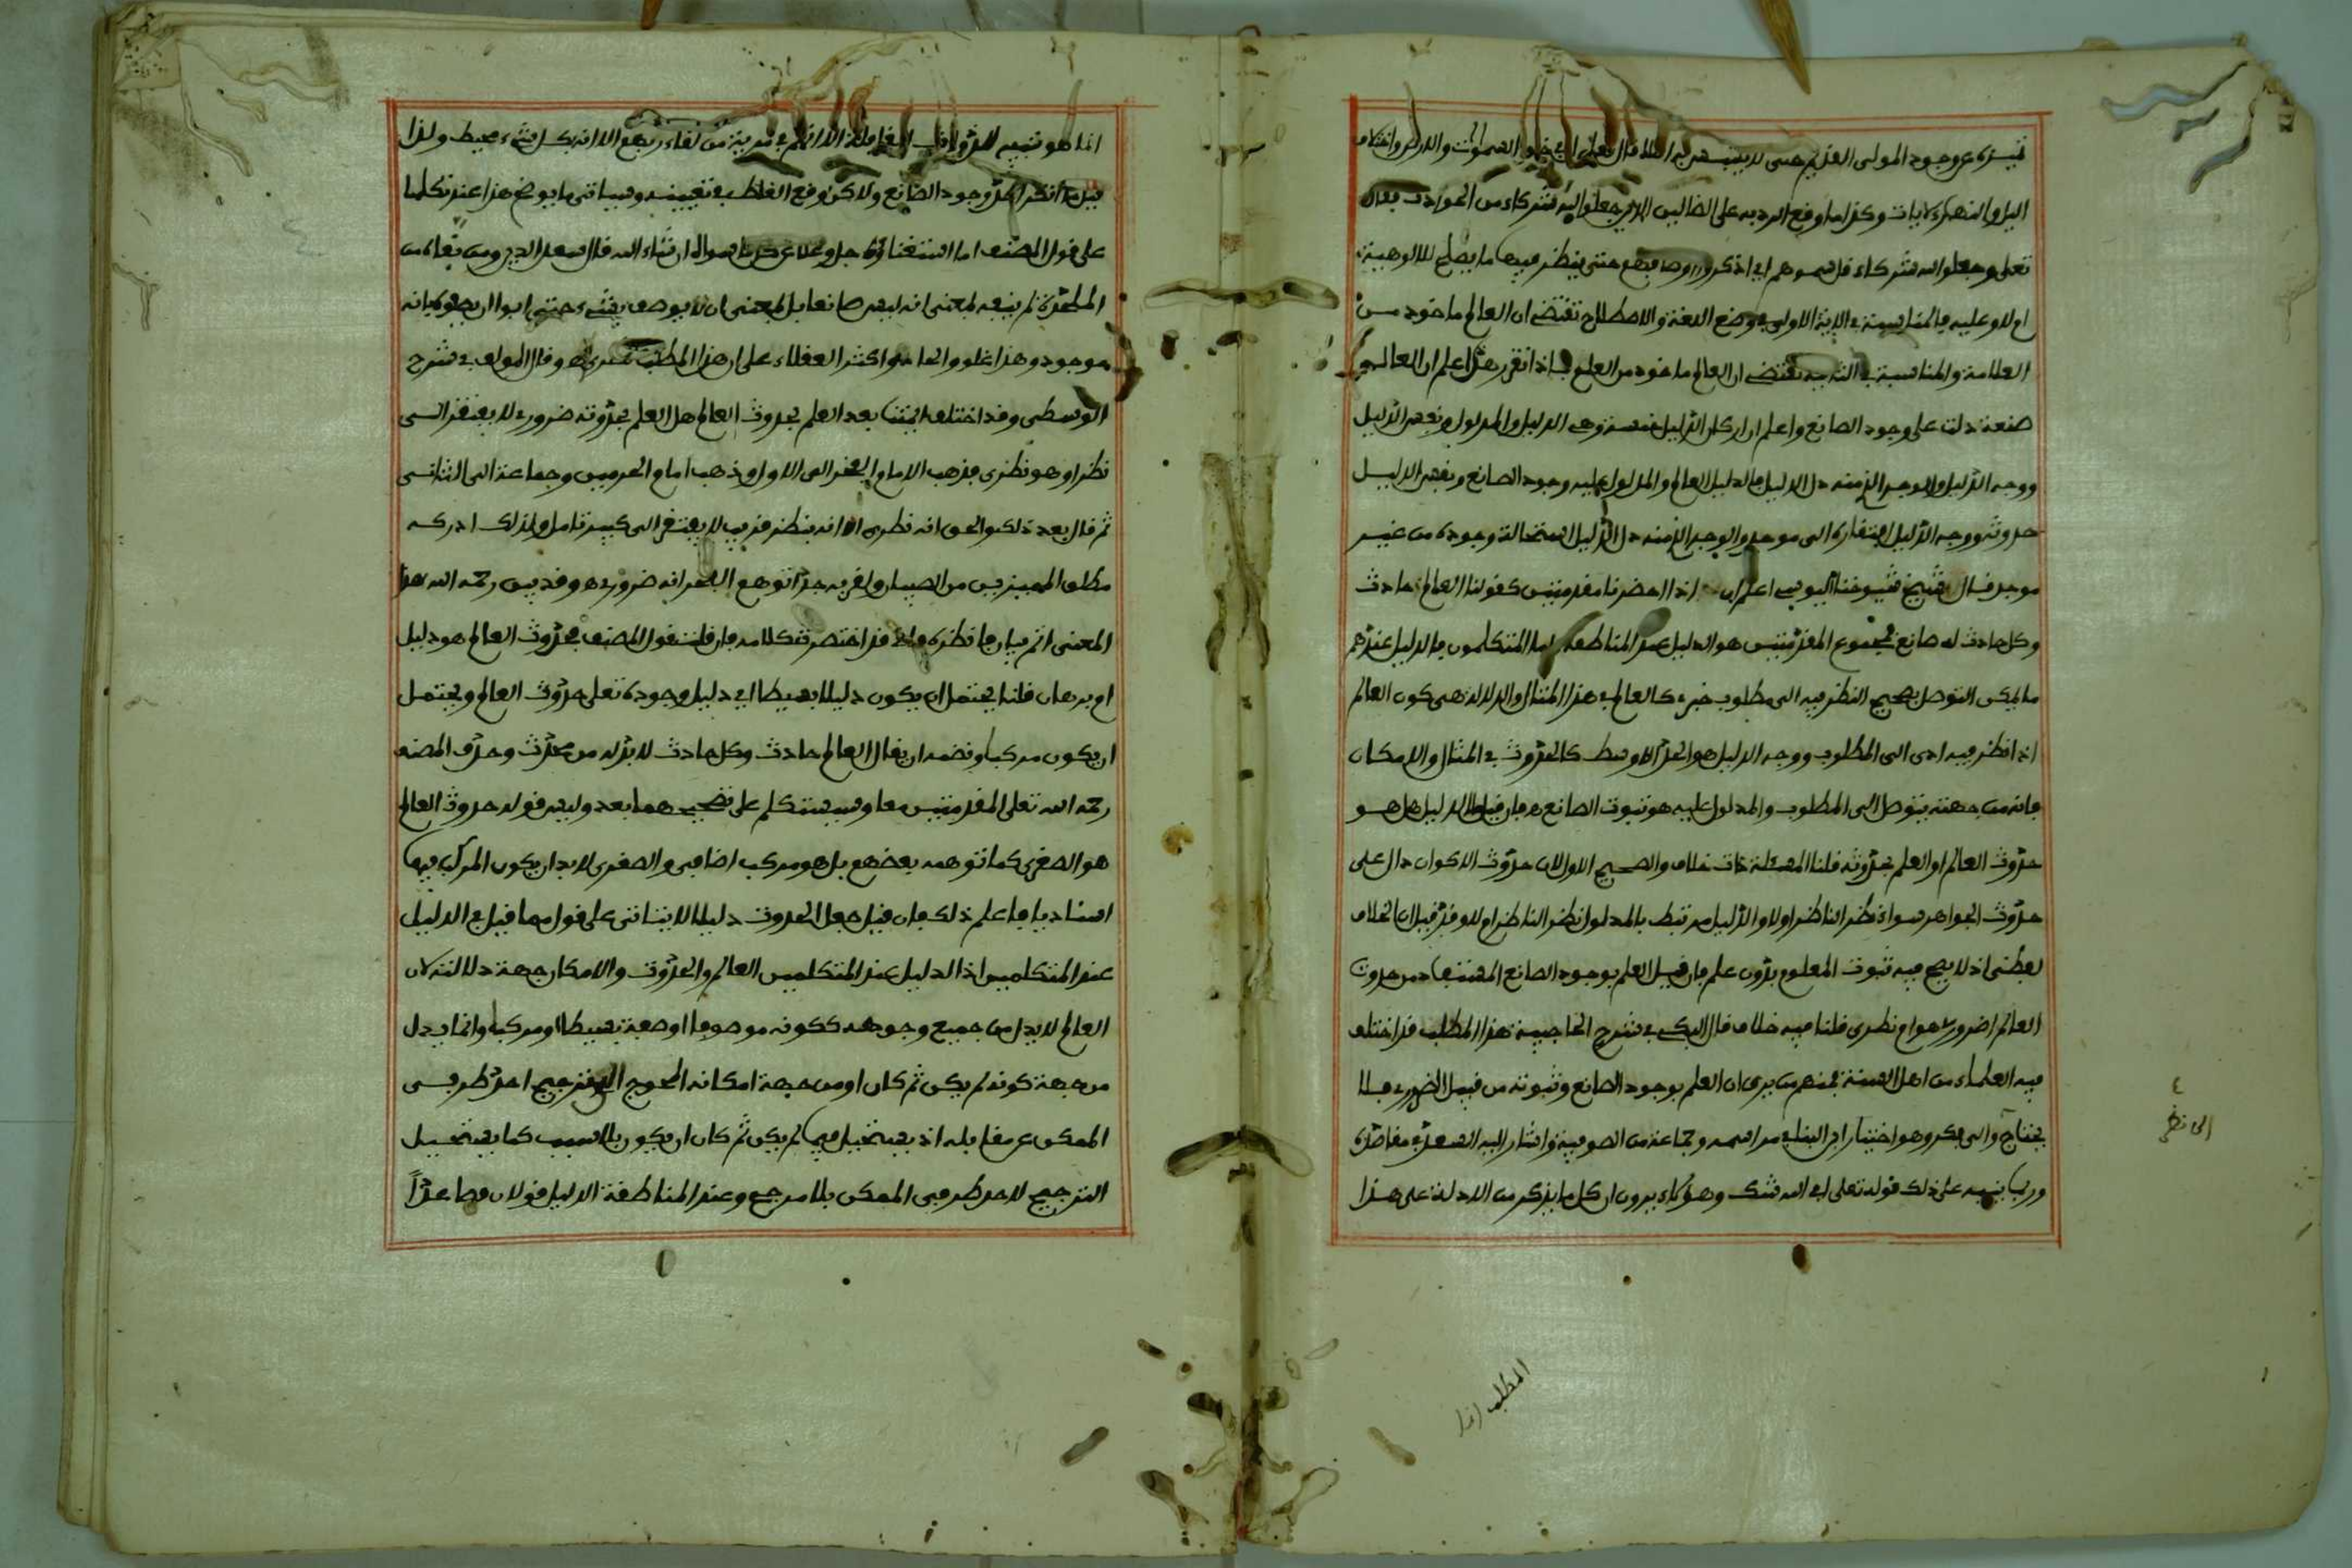 تميزه عن وجود المولى القديم حتى لا يلتبس به اصلا قال تعالى ان في خلق السموات والارض واختلاف
اليل والنهار لآيات وكذا ما وقع الرد به على الضالين الذين جعلوا لله شركاء من الحوادث فقال
تعلى وجعلوا لله شركاء قل سموهم اي اذكروا اوصافهم حتى ينظر فيها ما يصلح للالوهية
ام لا وعليه فالمناسبة في الاية الاولى في وضع اللغة والاصطلاح تقتضي ان العالم ماخوذ من
العلامة والمناسبة في الثانية تقتضي ان العالم ماخوذ من العلم فاذا تقرر هذا علم ان العالم
صنعة دلت على وجود الصانع واعلم ان اركان الدليل خمسة وهي الدليل والمدلول ونفس الدليل
ووجه الدليل والوجه الذي منه دل الدليل فالدليل العالم والمدلول عليه وجود الصانع ونفس الدليل
حدوثه ووجه الدليل افتقاره الى موجد والوجه الذي منه دل الدليل استحالة وجوده من غير
موجد قال شيخ شيوخنا اليوسي اعلم ان اذا احضرنا مقدمتين كقولنا العالم حادث
وكل حادث له صانع فمجموع المقدمتين هو الدليل عند المناطقة اما المتكلمون فالدليل عندهم
ما يمكن التوصل بصحيح النظر فيه الى مطلوب خبري كالعالم في هذا المثال والدلالة هي كون العالم
اذا نظر فيه ادى الى المطلوب ووجه الدليل هو الحد الاوسط كالحدوث في المثال والامكان
فانه من جهته يتوصل الى المطلوب والمدلول عليه هو ثبوت الصانع ه فان قيل الدليل هل هو
حدوث العالم او العلم بحدوثه قلنا المسئلة ذات خلاف والصحيح الاول لان حدوث الاكوان دال على
حدوث الجواهر سواء نظر الناظر اولا والدليل مرتبط بالمدلول نظر الناظر ام لا وقد قيل ان الخلاف
لفظي اذ لا يصح فيه ثبوت المعلوم بدون علم فان قيل العلم بوجود الصانع المستفاد من حدوث
العالم اضروري هو ام نظري قلنا فيه خلاف قال البكي في شرح الحاجبية هذا المطلب قد اختلف
فيه العلماء من اهل السنة فمنهم من يرى ان العلم بوجود الصانع وثبوته من قبيل الضروري فلا
يحتاج والى فكر وهو اختيار ابن البنا في مراسمه وجماعة من الصوفية واشار اليه السعد في مقاصده
وربما ينبه على ذلك قوله تعلى افي الله شك وهؤلاء يرون ان كل ما يذكر من الادلة على هذا
٤
الى نظر
المطلب انما
انما هو تنبيه للذوات الغافلة الا انهم في مرية من لقاء ربهم الا انه بكل شيء محيط ولذا
قيل ما انكر احد وجود الصانع ولاكن وقع الغلط في تعيينه وسياتي ما يوضح هذا عند تكلمنا
على قول المصنف اما استغناؤه جل وعلا عن كل ما سواه ان شاء الله قال السعد الدين ومن نفاه من
الملحدة لم ينفه لمعنى انه ليس صانعا بل لمعنى ان لا يوصف بشيء حتى ابوا ان يصفوه بانه
موجود وهذا غلو والحاد واكثر العقلاء على ان هذا المطلب نظري ه وقال المولف في شرح
الوسطى وقد اختلف ائمتنا بعد العلم بحدوث العالم هل العلم بحدوثه ضروري لا يفتقر الى
نظر او هو نظري فذهب الامام الفخر الى الاول وذهب امام الحرمين وجماعة الى الثاني
ثم قال بعد ذلك والحق انه نظري الا انه بنظر قريب لا يفتقر الى كبير تامل ولذلك ادركه
مطلق المميزين من الصبيان ولقربه جدا توهم الفخر انه ضروري ه وقد بين رحمه الله هذا
المعنى اتم بيان فانظره فانا قد اختصرت كلامه فان قلت قول المصنف فحدوث العالم هو دليل
او برهان قلنا يحتمل ان يكون دليلا بسيطا اي دليل وجوده تعلى حدوث العالم ويحتمل
ان يكون مركبا ونضمه ان يقال العالم حادث وكل حادث لا بد له من محدث وحذف المصنف
رحمه الله تعلى المقدمتين معا وسيتكلم على تصحيحهما بعد وليس قوله حدوث العالم
هو الصغرى كما توهمه بعضهم بل هو مركب اضافي والصغرى لا بد ان يكون المركب فيها
اسناديا فاعلم ذلك فان قيل جعل الحدوث دليلا لا يتاتى على قول مما قيل في الدليل
عند المتكلمين اذ الدليل عند المتكلمين العالم والحدوث والامكان جهة دلالته لان
العالم لا يدل من جميع وجوهه ككونه موصوفا او صفة بسيطا او مركبا وانما يدل
من جهة كونه لم يكن ثم كان او من جهة امكانه المحوج الى ترجيح احد طرفي
الممكن عن مقابله اذ يستحيل فيما لم يكن ثم كان ان يكون بلا سبب كما يستحيل
الترجيح لاحد طرفي الممكن بلا مرجح وعند المناطقة الدليل قولان فصاعدا